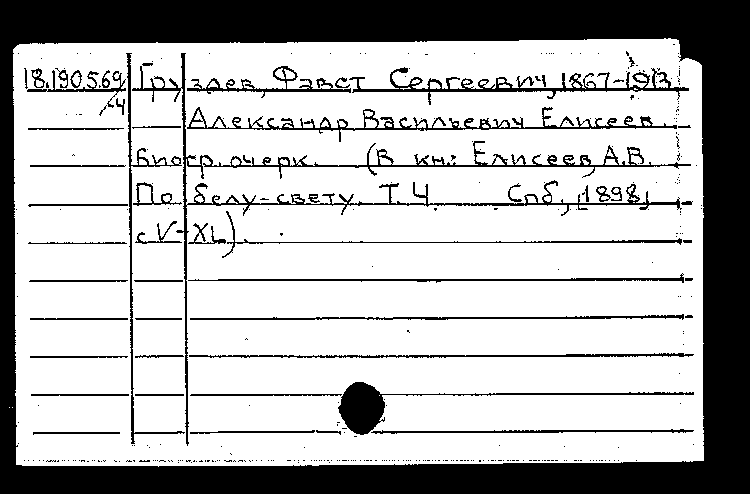 18.190.5.69/-4 Груздев, Фавст Сергеевич, 1867-1913.
Александр Васильевич Елисеев.
Биогр. очерк. (В кн.: Елисеев, А.В.
По белу-свету. Т. 4. Спб., [1898]
с V-XL).